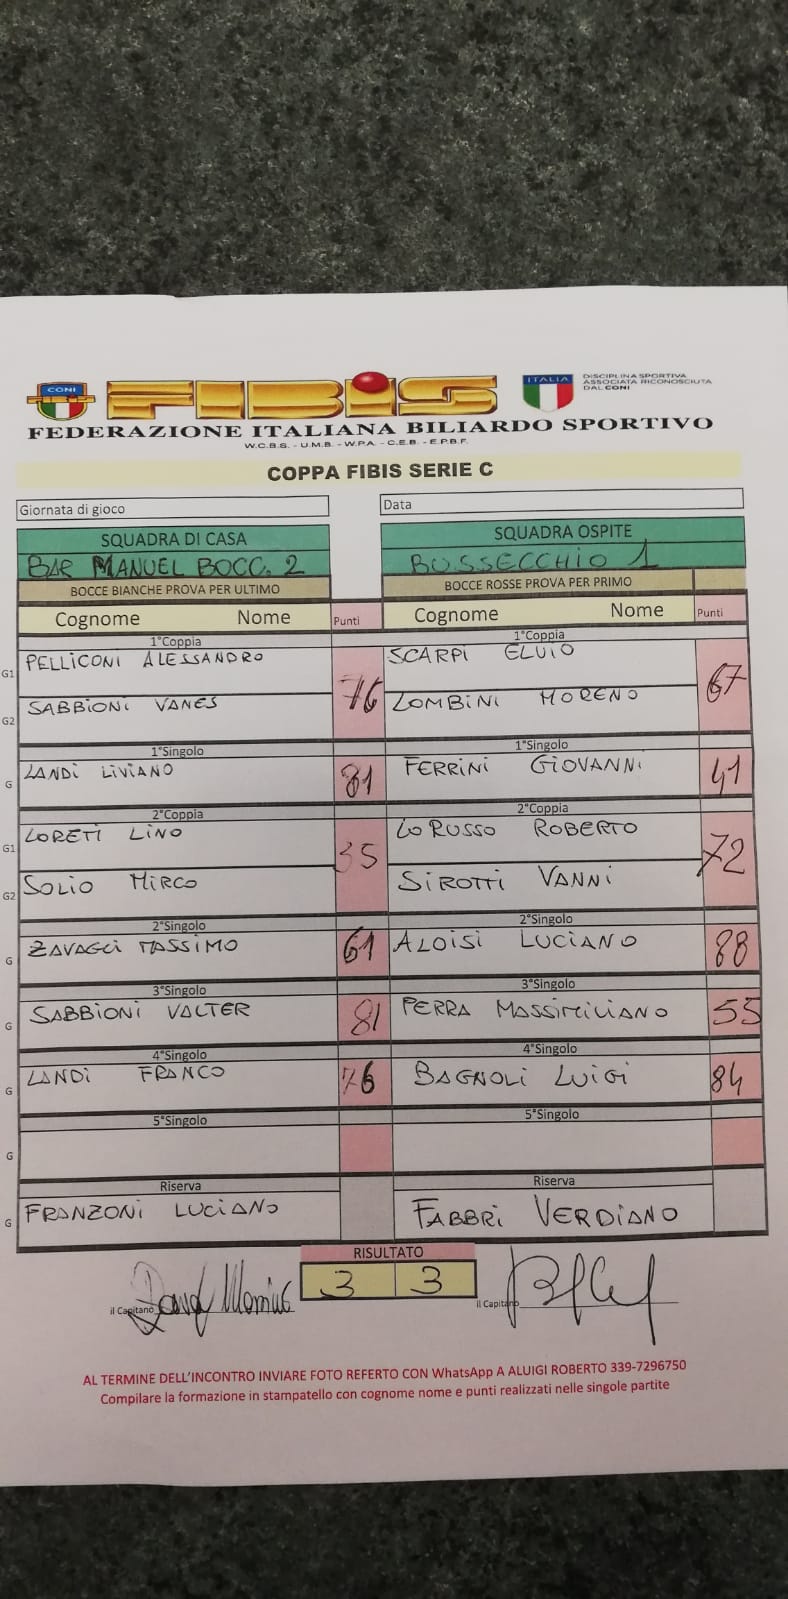 CONI
FIBIS
ITALIA
DISCIPLINA SPORTIVA
ASSOCIATA RICONOSCIUTA
DAL CONI
FEDERAZIONE ITALIANA BILIARDO SPORTIVO
W.C.B.S. - U.M.B. - W.P.A. - C.E.B. - E.P.B.F.
COPPA FIBIS SERIE C
Giornata di gioco Data
SQUADRA DI CASA SQUADRA OSPITE
BAR MANUEL BOCC. 2 BUSSECCHIO 1
BOCCE BIANCHE PROVA PER ULTIMO BOCCE ROSSE PROVA PER PRIMO
Cognome Nome Punti Cognome Nome Punti
1°Coppia 1°Coppia
G1 PELLICONI ALESSANDRO 76 SCARPI ELVIO 67
G2 SABBIONI VANES LOMBINI MORENO
1°Singolo 1°Singolo
G LANDI LIVIANO 81 FERRINI GIOVANNI 41
2°Coppia 2°Coppia
G1 LORETI LINO 35 LO RUSSO ROBERTO 72
G2 SOLIO MIRCO SIROTTI VANNI
2°Singolo 2°Singolo
G ZAVAGLI MASSIMO 61 ALOISI LUCIANO 88
3°Singolo 3°Singolo
G SABBIONI VALTER 81 PERRA MASSIMILIANO 55
4°Singolo 4°Singolo
G LANDI FRANCO 76 BAGNOLI LUIGI 84
5°Singolo 5°Singolo
G
Riserva Riserva
G FRANZONI LUCIANO FABBRI VERDIANO
RISULTATO
3 3
il Capitano il Capitano
AL TERMINE DELL'INCONTRO INVIARE FOTO REFERTO CON WhatsApp A ALUIGI ROBERTO 339-7296750
Compilare la formazione in stampatello con cognome nome e punti realizzati nelle singole partite